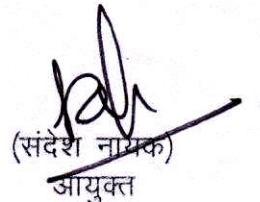 (संदेश नायक)
आयुक्त